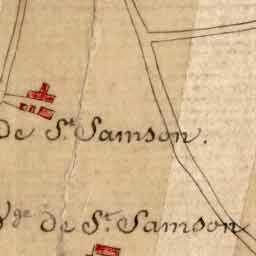 de S.t Samson.
V.ge de S.t Samson